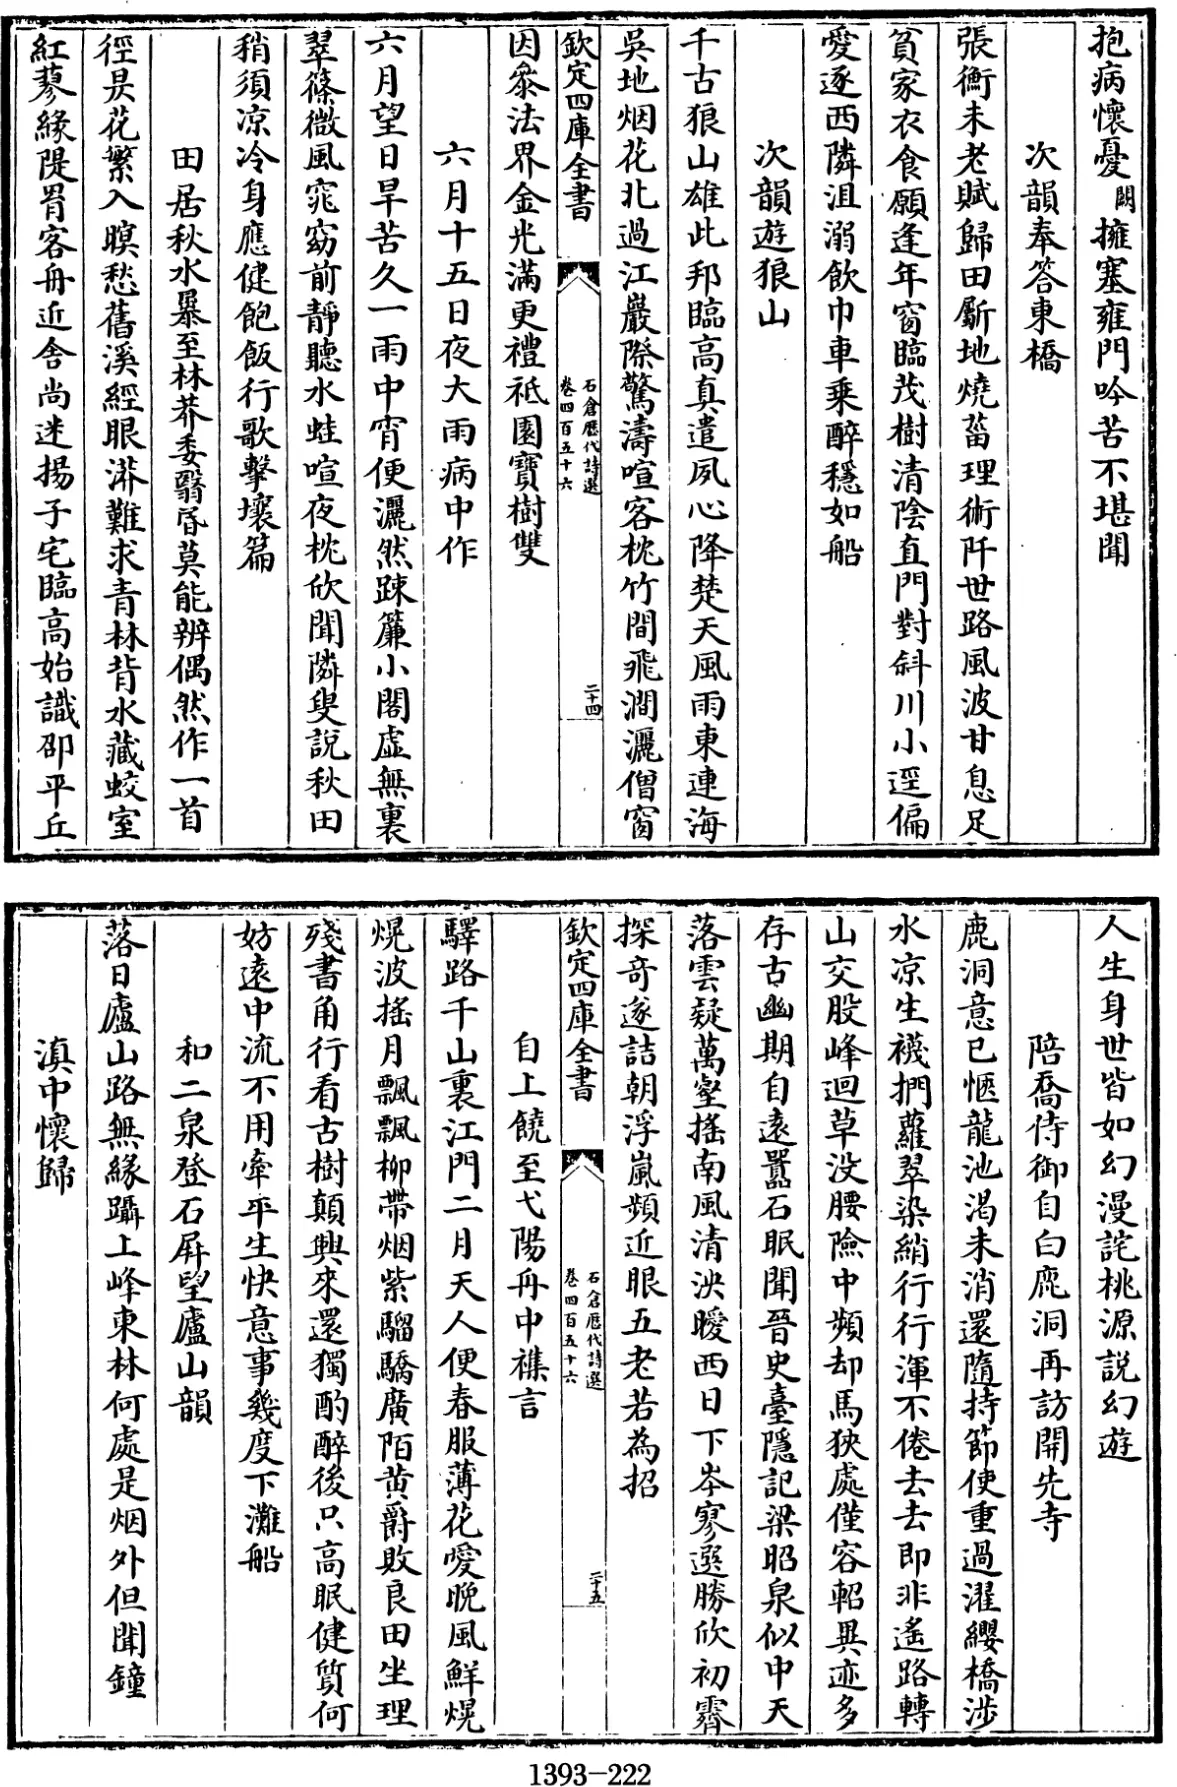 抱病懷憂闕擁塞雍門吟苦不堪聞
次韻奉答東橋
張衡未老賦歸田斸地燒菑理術阡世路風波甘息足
貧家衣食願逢年窗臨茂樹清陰直門對斜川小逕偏
愛逐西隣沮溺飲巾車乗醉穩如船
次韻遊狼山
千古狼山雄此邦臨高真遣夙心降楚天風雨東連海
吳地烟花北過江巖際驚濤喧客枕竹間飛澗灑僧窗
欽定四庫全書
石倉歷代詩選
卷四百五十六
二十四
因叅法界金光滿更禮祇園寶樹雙
六月十五日夜大雨病中作
六月望日旱苦久一雨中宵便灑然踈簾小閣虛無裏
翠篠微風窕窈前靜聽水蛙喧夜枕欣聞隣叟説秋田
稍須凉冷身應健飽飯行歌擊壤篇
田居秋水暴至林莽委翳昏莫能辨偶然作一首
徑是花繁入暝愁舊溪經眼漭難求青林背水藏蛟室
紅蓼緣隄罥客舟近舍尚迷揚子宅臨高始識邵平丘
人生身世皆如幻漫詫桃源説幻遊
陪喬侍御自白鹿洞再訪開先寺
鹿洞意已愜龍池渴未消還隨持節使重過濯纓橋涉
水凉生襪捫蘿翠染綃行行渾不倦去去即非遙路轉
山交股峰迴草没腰險中頻却馬狹處僅容軺異迹多
存古幽期自遠囂石眠聞晉史臺隱記梁昭泉似中天
落雲疑萬壑搖南風清泱曖西日下岑寥選勝欣初霽
探奇遂詰朝浮嵐頻近眼五老若為招
欽定四庫全書
石倉歷代詩選
卷四百五十六
二十五
自上饒至弋陽舟中襍言
驛路千山裏江門二月天人便春服薄花愛晚風鮮熀
熀波搖月飄飄柳帶烟紫騮驕廣陌黄爵敗良田坐理
殘書角行看古樹顛興來還獨酌醉後只高眠健質何
妨遠中流不用牽平生快意事幾度下灘船
和二泉登石屏望廬山韻
落日廬山路無緣躡上峰東林何處是烟外但聞鐘
滇中懷歸
1393-222